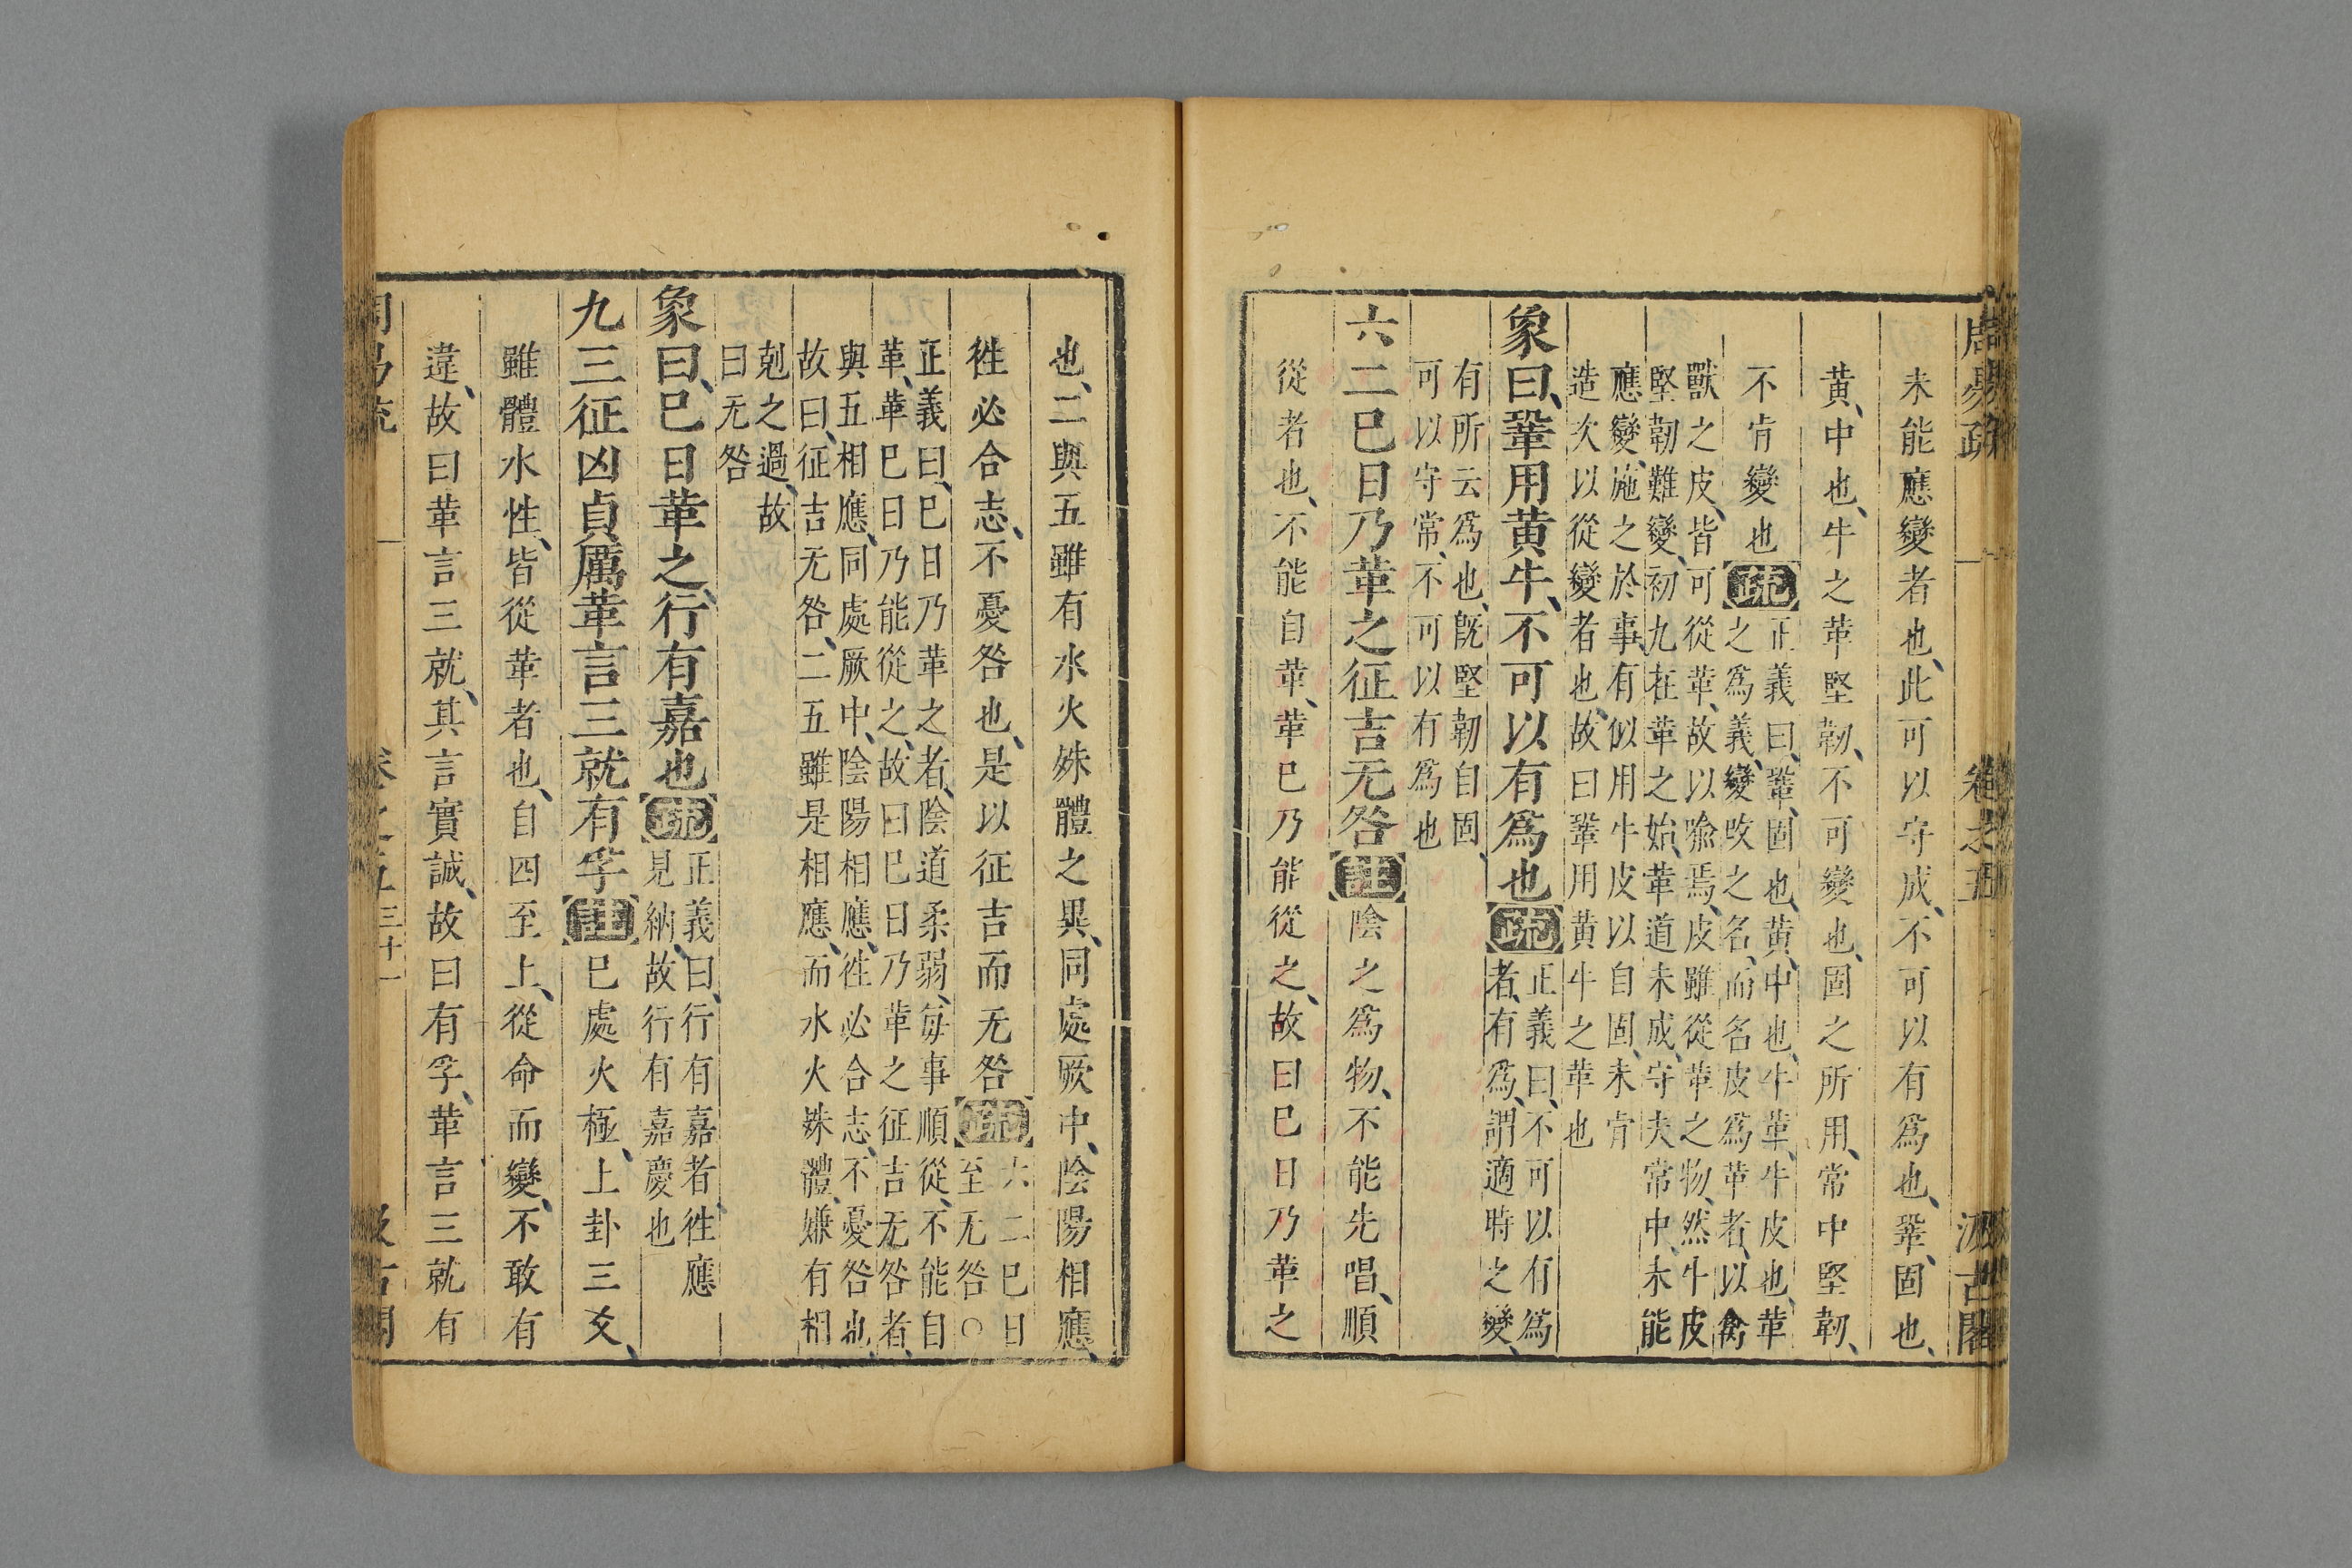 周易疏 卷之五 汲古閣
未能應變者也、此可以守成、不可以有爲也、鞏、固也、
黄、中也、牛之革堅韌、不可變也、固之所用、常中堅韌、
不肯變也疏正義曰、鞏、固也、黄、中也、牛革、牛皮也、革
之爲義、變改之名、而名皮爲革者、以禽
獸之皮、皆可從革、故以喩焉、皮雖從革之物、然牛皮
堅韌難變、初九在革之始、革道未成、守夫常中、未能
應變、施之於事、有似用牛皮以自固、未肯
造次以從變者也、故曰鞏用黄牛之革也
象曰、鞏用黄牛、不可以有爲也疏正義曰、不可以有爲
者、有爲、謂適時之變、
有所云爲也、旣堅韌自固、
可以守常、不可以有爲也
六二巳日乃革之征吉无咎註陰之爲物、不能先唱、順
從者也、不能自革、革巳乃能從之、故曰巳日乃革之
也、二與五雖有水火殊體之異、同處厥中、陰陽相應、
徃必合志、不憂咎也、是以征吉而无咎疏六二巳日
至无咎○
正義曰、巳日乃革之者、陰道柔弱、每事順從、不能自
革、革巳日乃能從之、故曰巳日乃革之征吉无咎者、
與五相應、同處厥中、陰陽相應、徃必合志、不憂咎也、
故曰、征吉无咎、二五雖是相應、而水火殊體、嫌有相
剋之過、故
曰无咎
象曰、巳日革之、行有嘉也疏正義曰、行有嘉者、徃應
見納、故行有嘉慶也
九三征凶貞厲革言三就有孚註巳處火極、上卦三爻、
雖體水性、皆從革者也、自四至上、從命而變、不敢有
違、故曰革言三就、其言實誠、故曰有孚、革言三就有
周易疏 卷之五 三十一 汲古閣